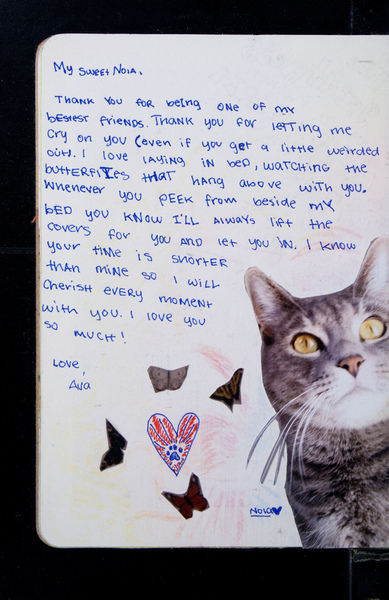 My sweet Nola,
Thank you for being one of my
bestest friends. Thank you for letting me
cry on you (even if you get a little weirded
out). I love laying in bed, watching the
butterflies that hang above with you.
Whenever you peek from beside my
bed you know I'll always lift the
covers for you and let you in. I know
your time is shorter
than mine so I will
cherish every moment
with you. I love you
so much!
Love,
Ava
Nola